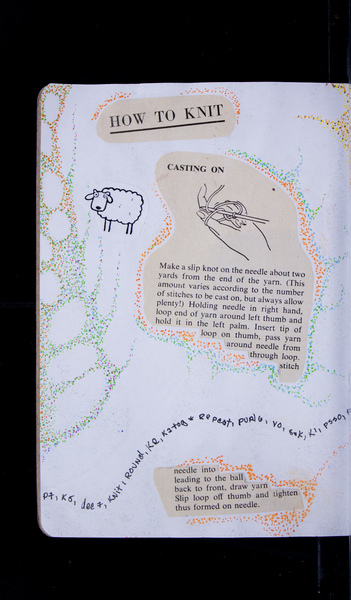 HOW TO KNIT
CASTING ON
Make a slip knot on the needle about two
yards from the end of the yarn. (This
amount varies according to the number
of stitches to be cast on, but always allow
plenty!) Holding needle in right hand,
loop end of yarn around left thumb and
hold it in the left palm. Insert tip of
loop on thumb, pass yarn
around needle from
through loop.
stitch
P7, K5, dec 7, KNIT, ROUND, K2, K2tog * REPEAT, PURLS, YO, K1, PSSO,
needle into
leading to the ball
back to front, draw yarn
Slip loop off thumb and tighten
thus formed on needle.